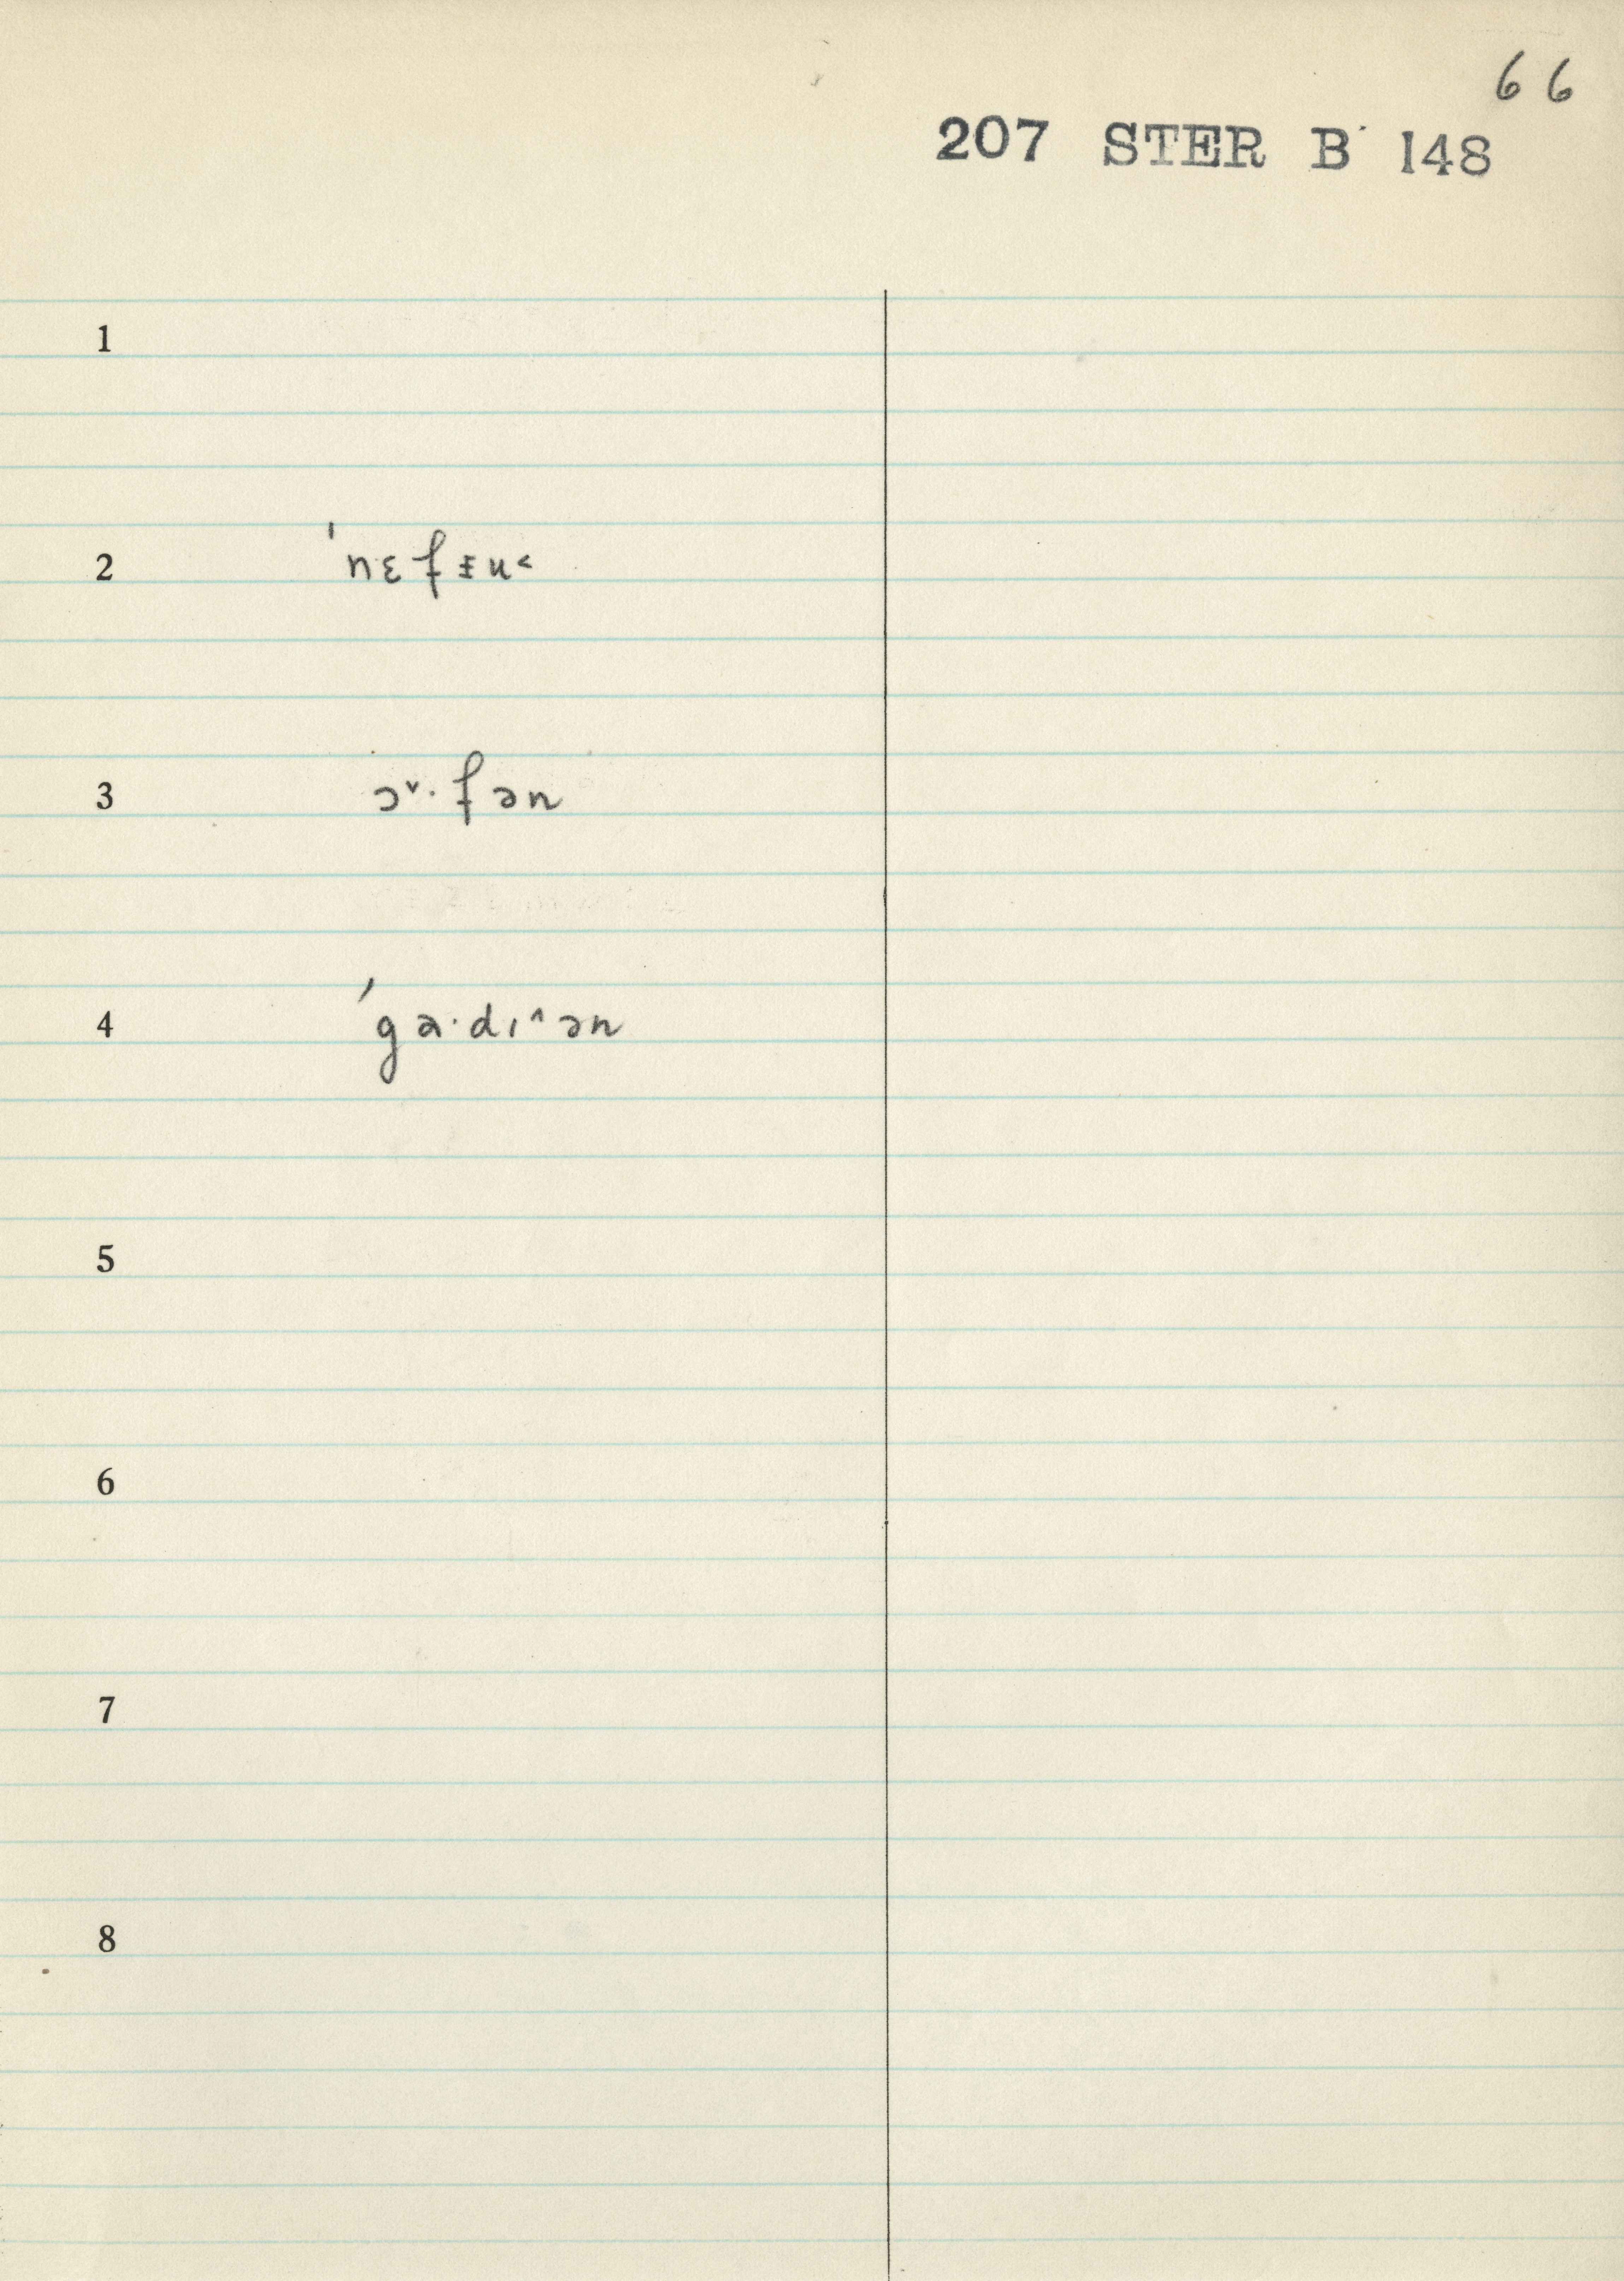 66
207 STER B 148
1
2 ˈnɛfɪ̵u˂
3 ɔ˅·fən
4 ˈga·dɪ˄ən
5
6
7
8